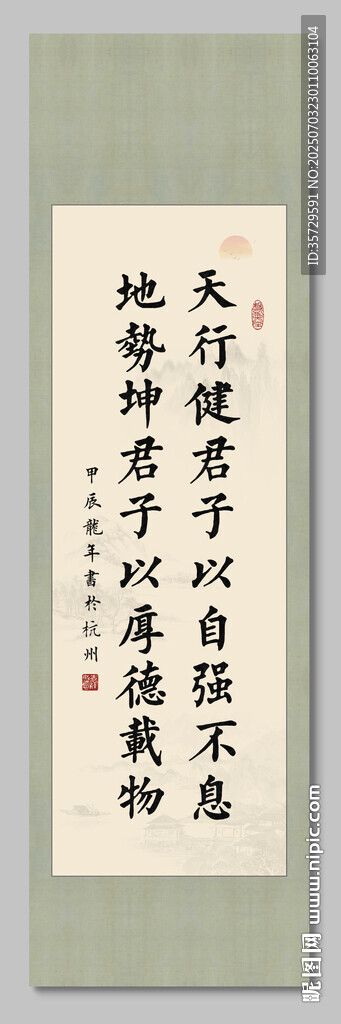 天行健君子以自强不息
地勢坤君子以厚德載物
甲辰龍年書於杭州
ID:35729591 NO:20250703230110063104
昵图网 www.nipic.com